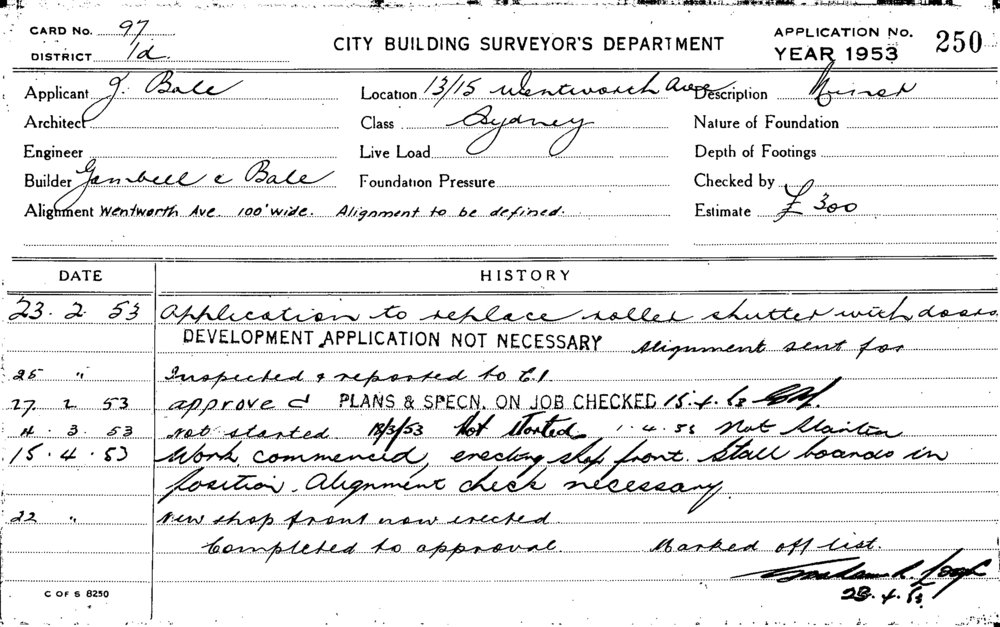 CARD No. 97
DISTRICT 1d
CITY BUILDING SURVEYOR'S DEPARTMENT
APPLICATION No. 250
YEAR 1953
Applicant J. Bale Location 13/15 Wentworth Ave Description Minor
Architect Class Sydney Nature of Foundation
Engineer Live Load Depth of Footings
Builder Gambell & Bale Foundation Pressure Checked by
Alignment Wentworth Ave. 100' wide. Alignment to be defined. Estimate £300
DATE HISTORY
23. 2. 53 Application to replace roller shutter with doors.
DEVELOPMENT APPLICATION NOT NECESSARY Alignment sent for
25 " Inspected & reported to C.I.
27. 2. 53 approved PLANS & SPECN. ON JOB CHECKED 15.4.53
4. 3. 53 Not started 18/3/53 Not Started 1.4.53 Not Started
15. 4. 53 Work commenced, erecting shop front. Stall boards in
position. Alignment check necessary.
22 " New shop front now erected.
Completed to approval. Marked off list.
23.4.53
C OF S 8250